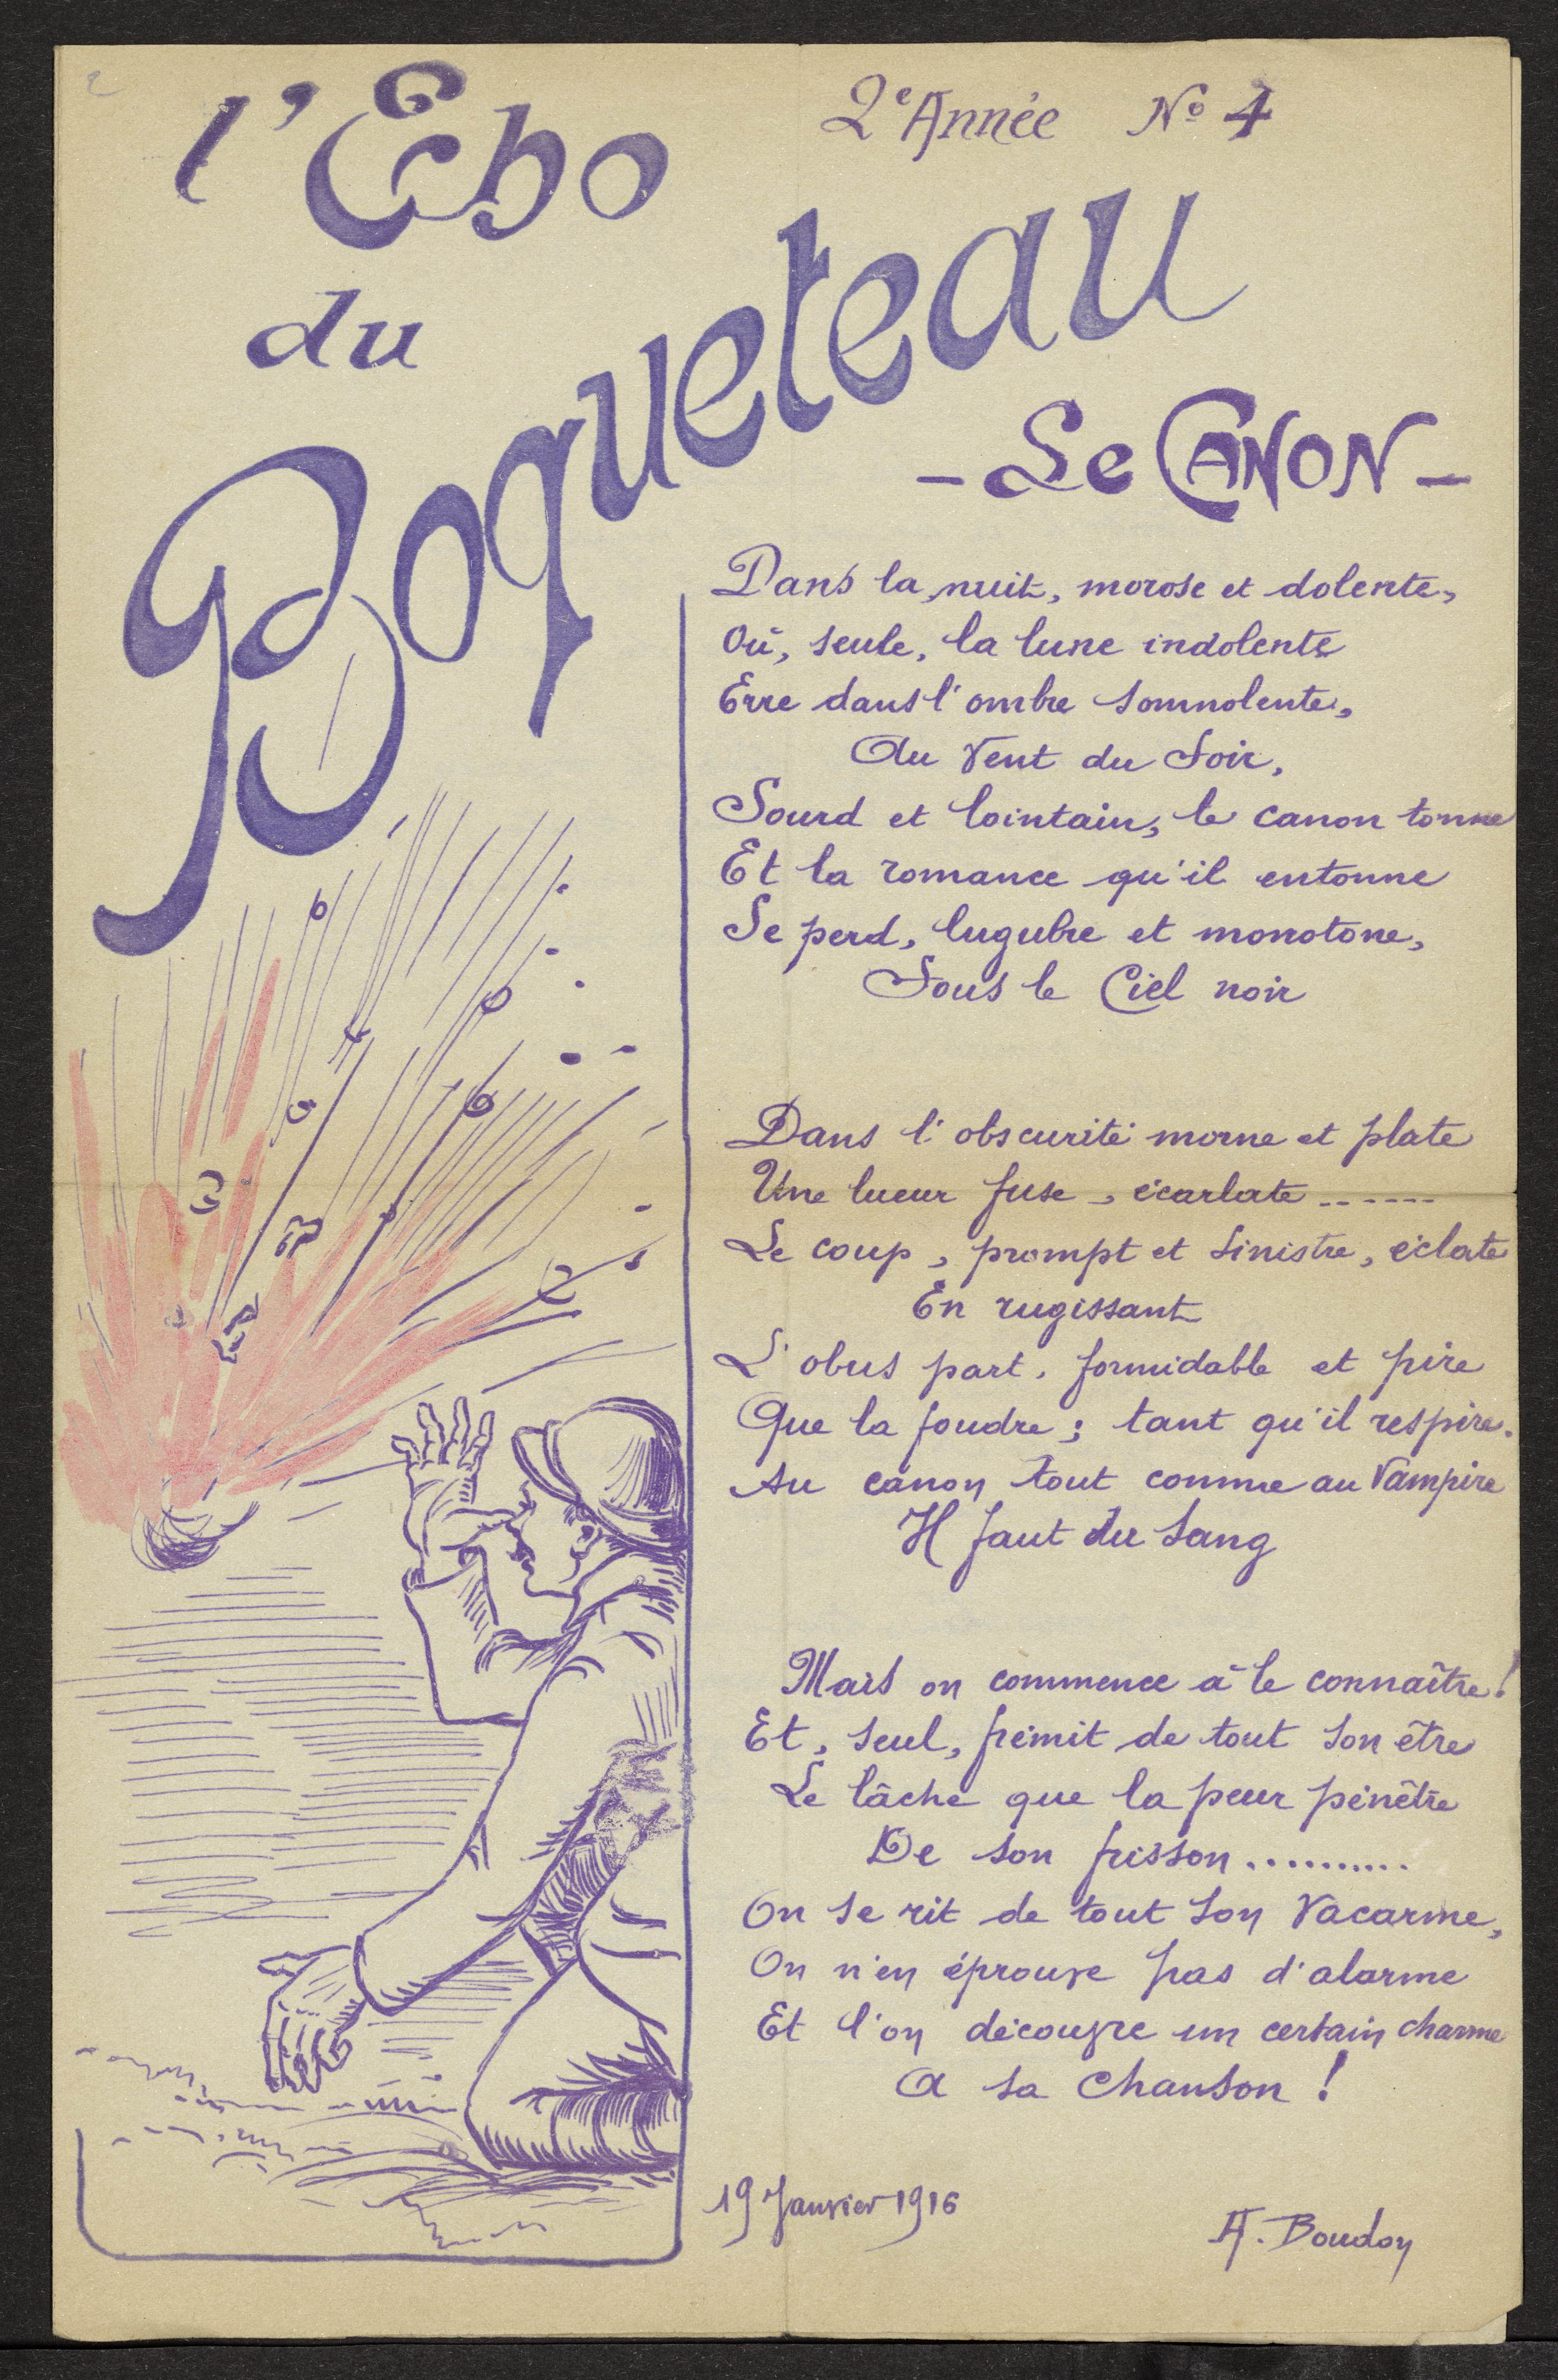 l'Echo
du
Boqueteau
2e Année No 4
- Le CANON -
Dans la nuit, morose et dolente,
Où, seule, la lune indolente
Erre dans l'ombre somnolente,
Au Vent du Soir,
Sourd et lointain, le canon tonne
Et la romance qu'il entonne
Se perd, lugubre et monotone,
Sous le Ciel noir
Dans l'obscurité morne et plate
Une lueur fuse, écarlate ......
Le coup, prompt et sinistre, éclate
En rugissant
L'obus part, formidable et pire
Que la foudre ; tant qu'il respire.
Au canon tout comme au Vampire
Il faut du sang
Mais on commence à le connaître !
Et, seul, frémit de tout son être
Le lâche que la peur pénètre
De son frisson ..........
On se rit de tout son Vacarme,
On n'en éprouve pas d'alarme
Et l'on découvre un certain charme
A sa Chanson !
19 Janvier 1916
A. Boudon